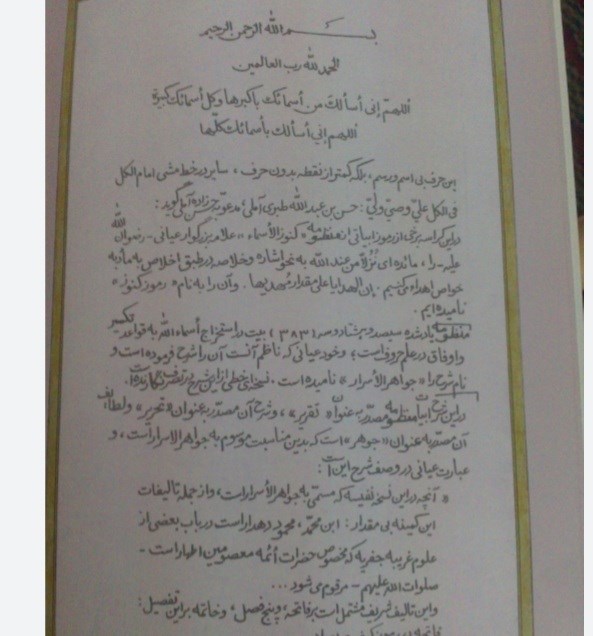 بسم الله الرحمن الرحیم
الحمد لله رب العالمین
اللهمّ إنی أسألك من أسمائك بأکبرها وکل أسمائك کبیرة
اللهم إنی أسألك بأسمائك کلّها
این حرف بی اسم ورسم، بلکه کمتر از نقطه بدون حرف، سایر در خط مشی امام الکل
فی الکل علیّ وصیّ ولیّ: حسن بن عبد الله طبری آملی، مدعوّ به حسن زاده آملی گوید:
در این کراسه برخی از رموز ابیاتی از منظومه «کنوز الأسماء» علامه بزرگوار عیانی - رضوان الله
علیه - را، مائده ای نُزُلاً من عند الله به نحو اشاره وخلاصه در طبق اخلاص به مأدبه
خواص اهداء می کنیم. إن الهدایا علی مقدار مُهدیها. وآن را به نام «رموز کنوز»
نامیده ایم.
منظومه یاد شده سیصد وهشتاد وسه (۳۸۳) بیت در استخراج أسماء الله به قواعد تکسیر
و اوفاق در علم حروف است؛ وخود عیانی که ناظم آنست آن را شرح فرموده است و
نام شرح را «جواهر الأسرار» نامیده است. نسخه ای خطی از این شرح در تصرف نگارنده است.
در این شرح ابیات منظومه مصدّر به عنوان «تقریر»، وشرح آن مصدّر به عنوان «تحریر» ولطائف
آن مصدّر به عنوان «جوهر» است که بدین مناسبت موسوم به جواهر الاسرار است، و
عبارت عیانی در وصف شرح این است:
« آنچه در این نسخه نفیسه که مسمّی به جواهر الأسرار است، واز جمله تالیفات
این کمینه بی مقدار: ابن محمّد، محمود دهدار است در باب بعضی از
علوم غریبه جفریه که مخصوص حضرات أئمه معصومین اطهار است -
صلوات الله علیهم - مرقوم می شود ...
واین تالیف شریف مشتمل است بر فاتحه، وپنج فصل، وخاتمه بر این تفصیل: